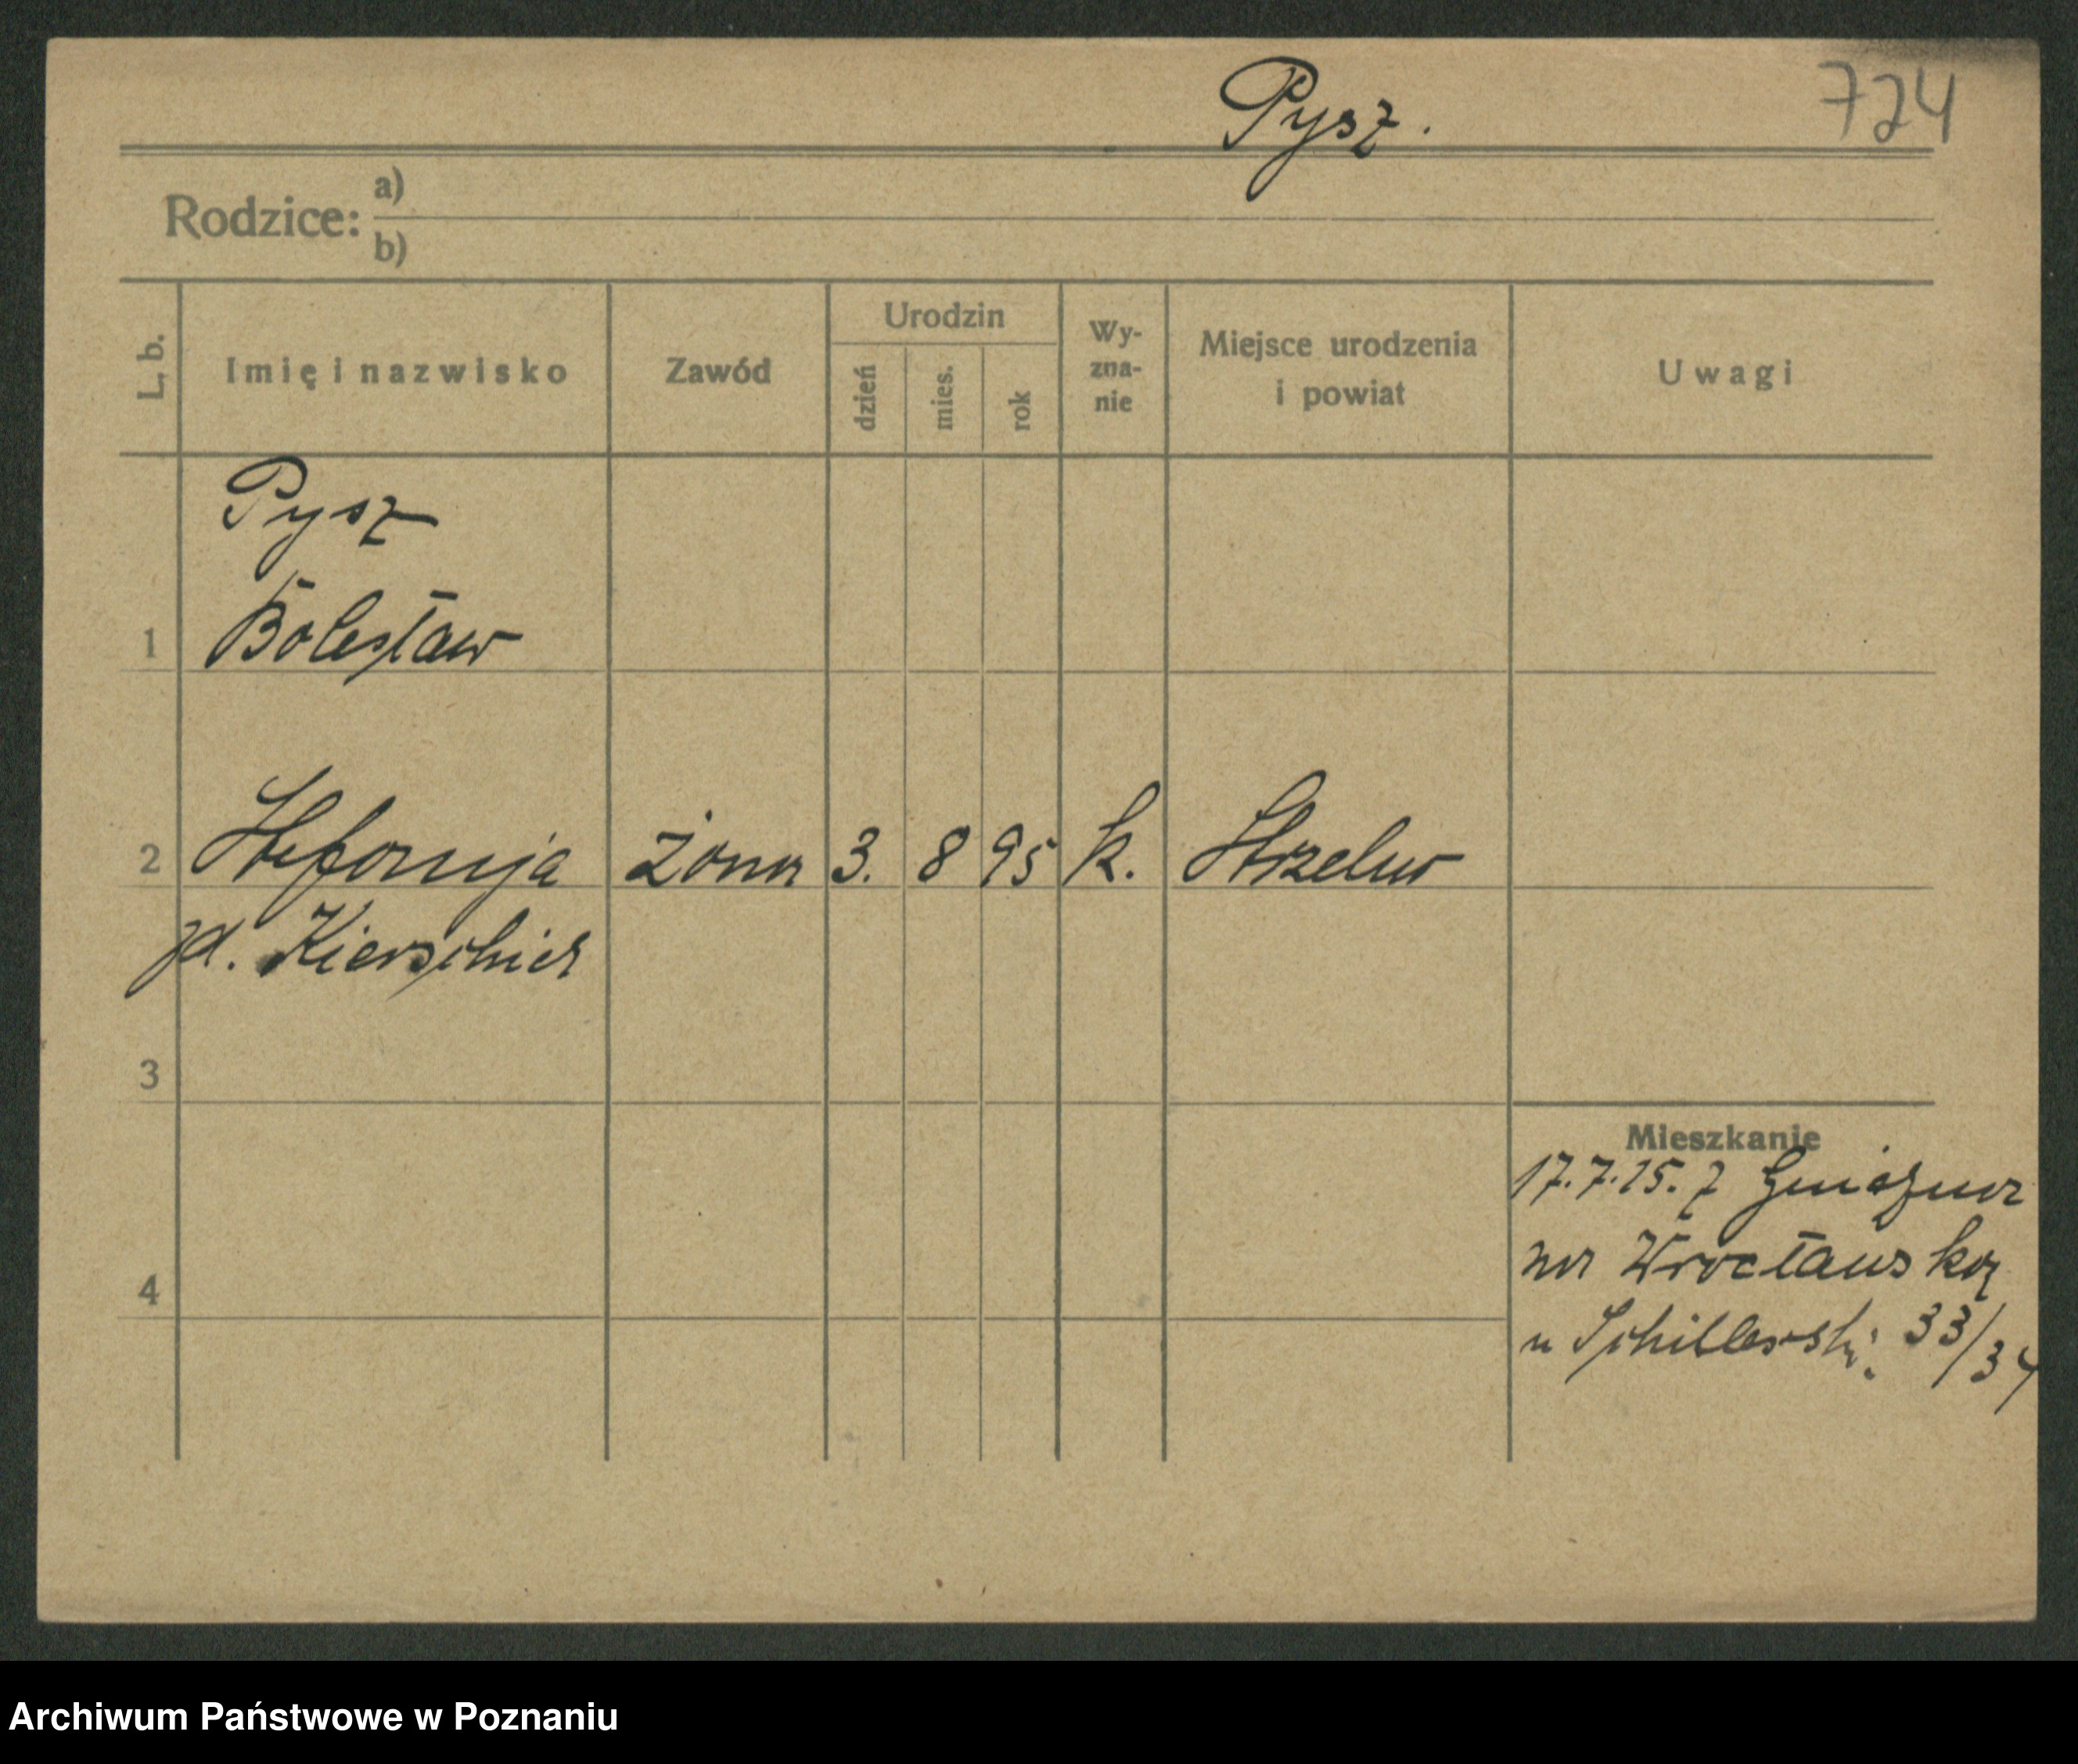 Pysz.
724
Rodzice: a)
b)
L. b.
Imię i nazwisko
Zawód
Urodzin
dzień
mies.
rok
Wy-
zna-
nie
Miejsce urodzenia
i powiat
Uwagi
Pysz
1 Bolesław
2 Stefanja żona 3. 8 95 k.
3
Mieszkanie
17.7.25. z Gniezna
na Wrocławską
4
u Schillerski 33/34
Archiwum Państwowe w Poznaniu